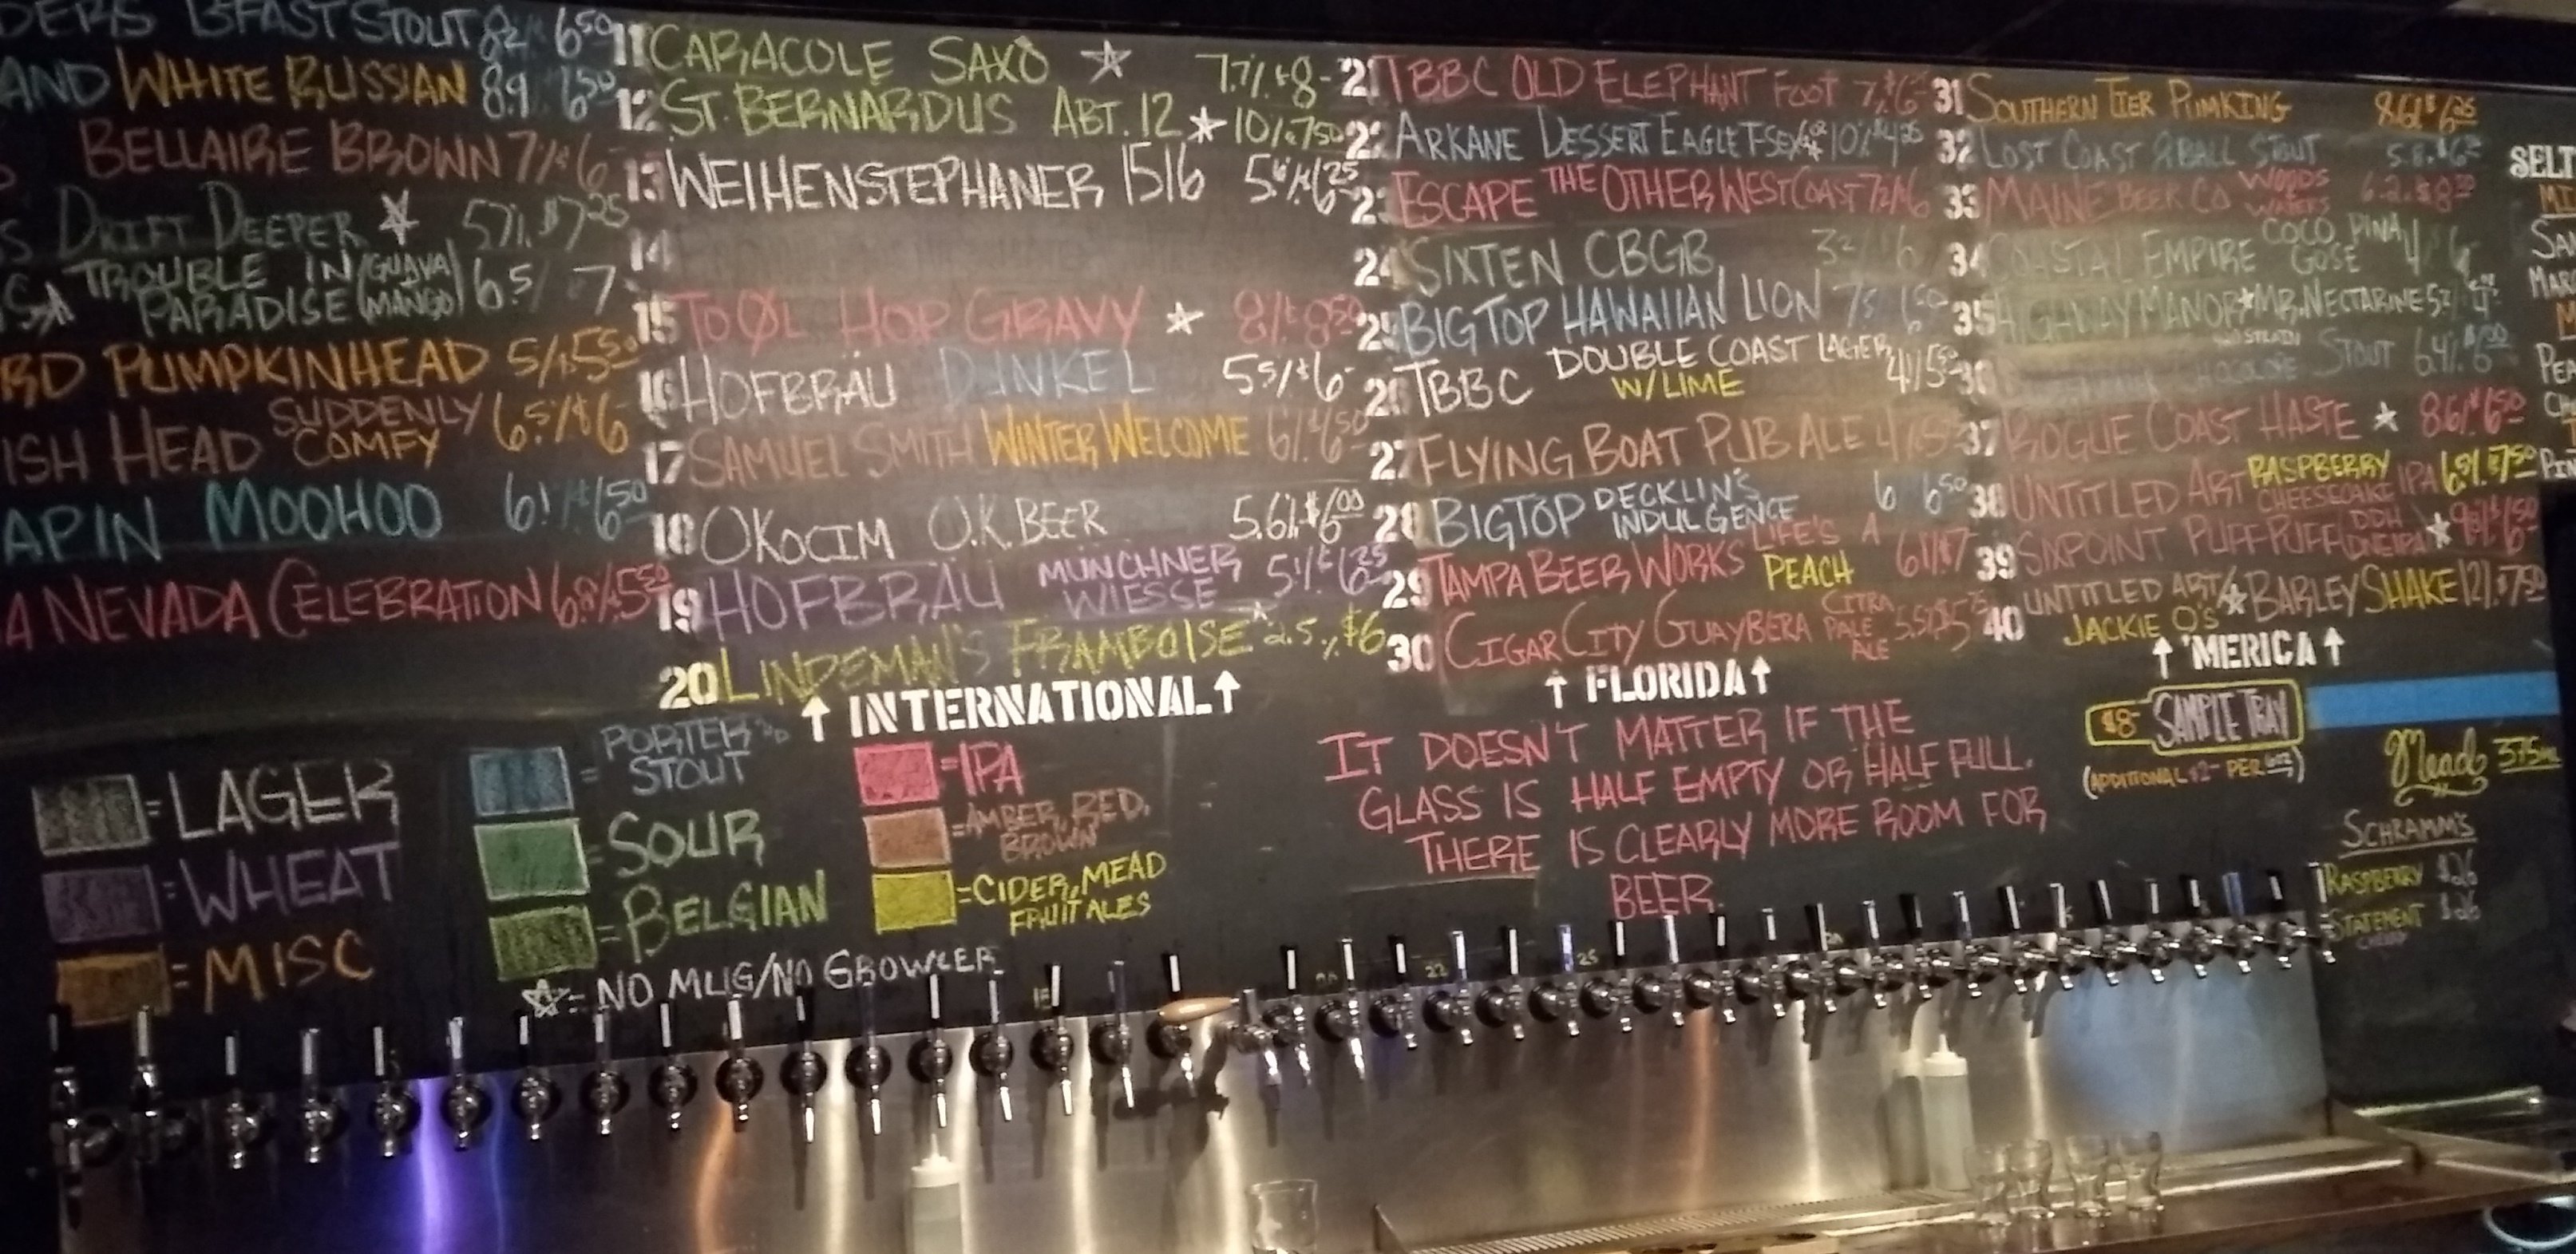 DERS BFAST STOUT 82 6 50
AND WHITE RUSSIAN 8.9 6 50
BELLAIRE BROWN 7% $6
S DRIFT DEEPER ☆ 57% $7 25
S ☆ TROUBLE IN PARADISE (GUAVA MANGO) 6.5/ 7
RD PUMPKINHEAD 5/ 5 50
ISH HEAD SUDDENLY COMFY 6.5% $6
APIN MOOHOO 6.1% $6 50
A NEVADA CELEBRATION 6.8/ 5 50
11 CARACOLE SAXO ☆ 7.7% $8-
12 ST. BERNARDUS ABT. 12 ★ 10% 7 50
13 WEIHENSTEPHANER 1516 5 6 25
14
15 TO ØL HOP GRAVY ★ 8% $8 50
16 HOFBRÄU DUNKEL 55/ $6-
17 SAMUEL SMITH WINTER WELCOME 6% $6 50
18 OKOCIM O.K. BEER 5.6% $6 00
19 HOFBRAU MUNCHNER WIESSE 5.1% $6 25
20 LINDEMAN'S FRAMBOISE ★ 2.5% $6
↑ INTERNATIONAL ↑
21 TBBC OLD ELEPHANT FOOT 7% $6
22 ARKANE DESSERT EAGLE 10%
23 ESCAPE THE OTHER WEST COAST 72% $6
24 SIXTEN CBGB 32 6
25 BIG TOP HAWAIIAN LION 75 6 50
26 TBBC DOUBLE COAST LAGER W/LIME 4%
27 FLYING BOAT PUB ALE
28 BIGTOP DECKLIN'S INDULGENCE 6 6 50
29 TAMPA BEER WORKS LIFE'S A PEACH 6% $7
30 CIGAR CITY GUAYBERA CITRA PALE ALE 5.5%
↑ FLORIDA ↑
31 SOUTHERN TIER PUMKING 8.6% $6 25
32 LOST COAST 8 BALL STOUT 5.8
33 MAINE BEER CO WOODS WATERS 6.2
34 COASTAL EMPIRE COCO PINA GOSE 4% 6
35 HIGHWAY MANOR ★ MR. NECTARINE
36 STOUT 6.4% $6 00
37 ROGUE COAST HASTE ★ 8.6% $6 50
38 UNTITLED ART RASPBERRY CHEESECAKE IPA 6.8% $7 50
39 SIXPOINT PUFF PUFF (DDH DNEIPA) ★
40 UNTITLED ART/ JACKIE O'S ★ BARLEY SHAKE 12% $7 50
↑ 'MERICA ↑
SELT
= LAGER
= WHEAT
= MISC
= PORTER AND STOUT
= SOUR
= BELGIAN
☆ = NO MUG/NO GROWLER
= IPA
= AMBER, RED, BROWN
= CIDER, MEAD FRUIT ALES
IT DOESN'T MATTER IF THE
GLASS IS HALF EMPTY OR HALF FULL.
THERE IS CLEARLY MORE ROOM FOR
BEER.
$8- SAMPLE TRAY
(ADDITIONAL $2- PER 6oz)
Mead 375ML
SCHRAMM'S
RASPBERRY $26
STATEMENT $26
CHERRY